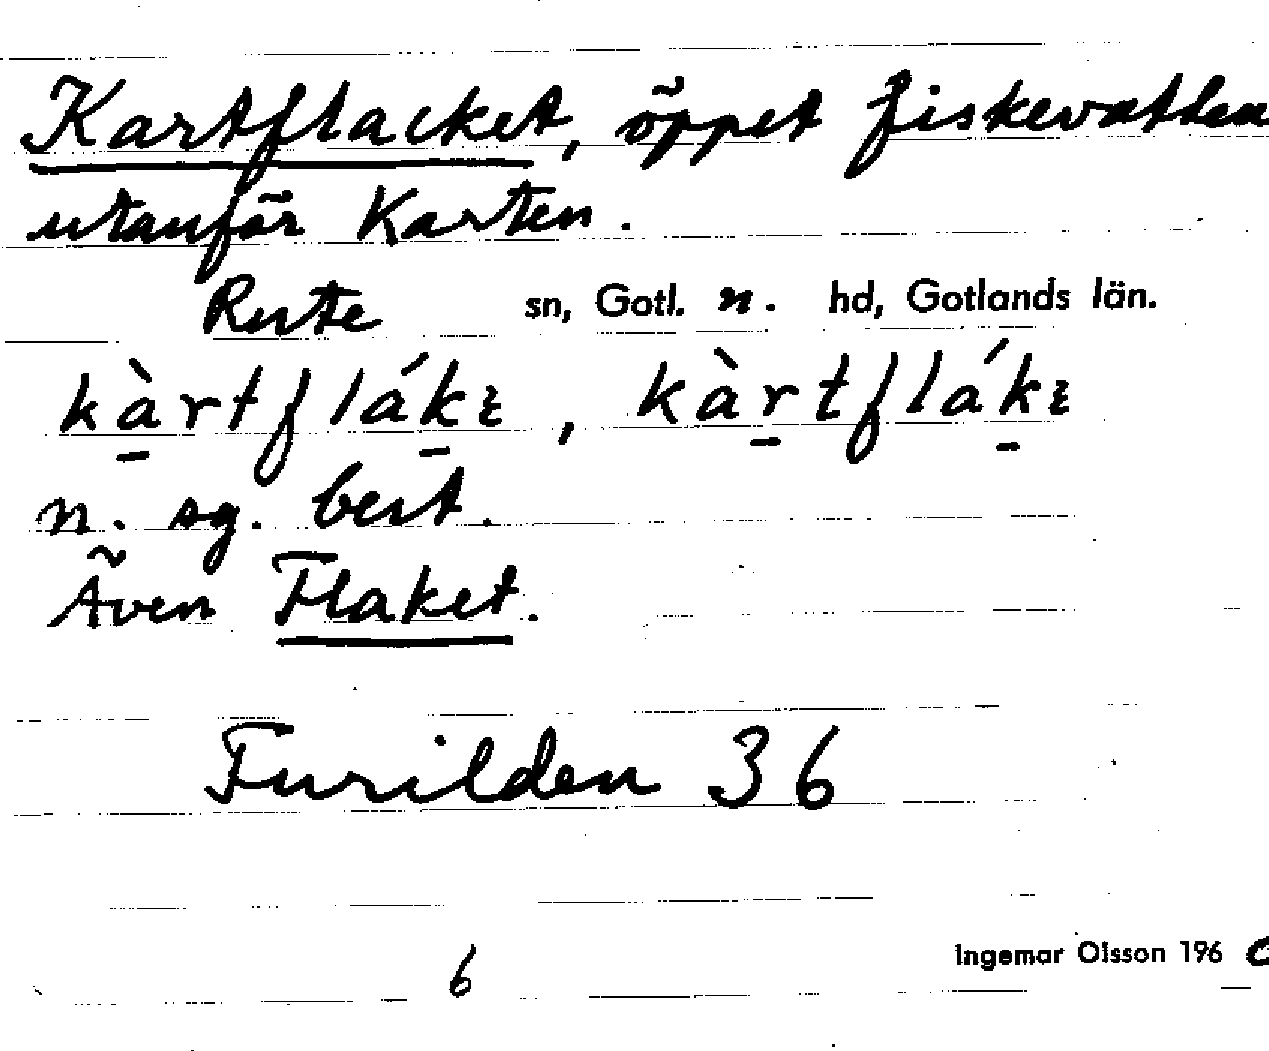 Kartflacket, öppet fiskevatten
utanför Karten.
Rute sn, Gotl. n. hd, Gotlands län.
kàrtflákɩ, kàrtflákɩ
n. sg. best.
Även Flaket.
Furilden 36
6
Ingemar Olsson 196